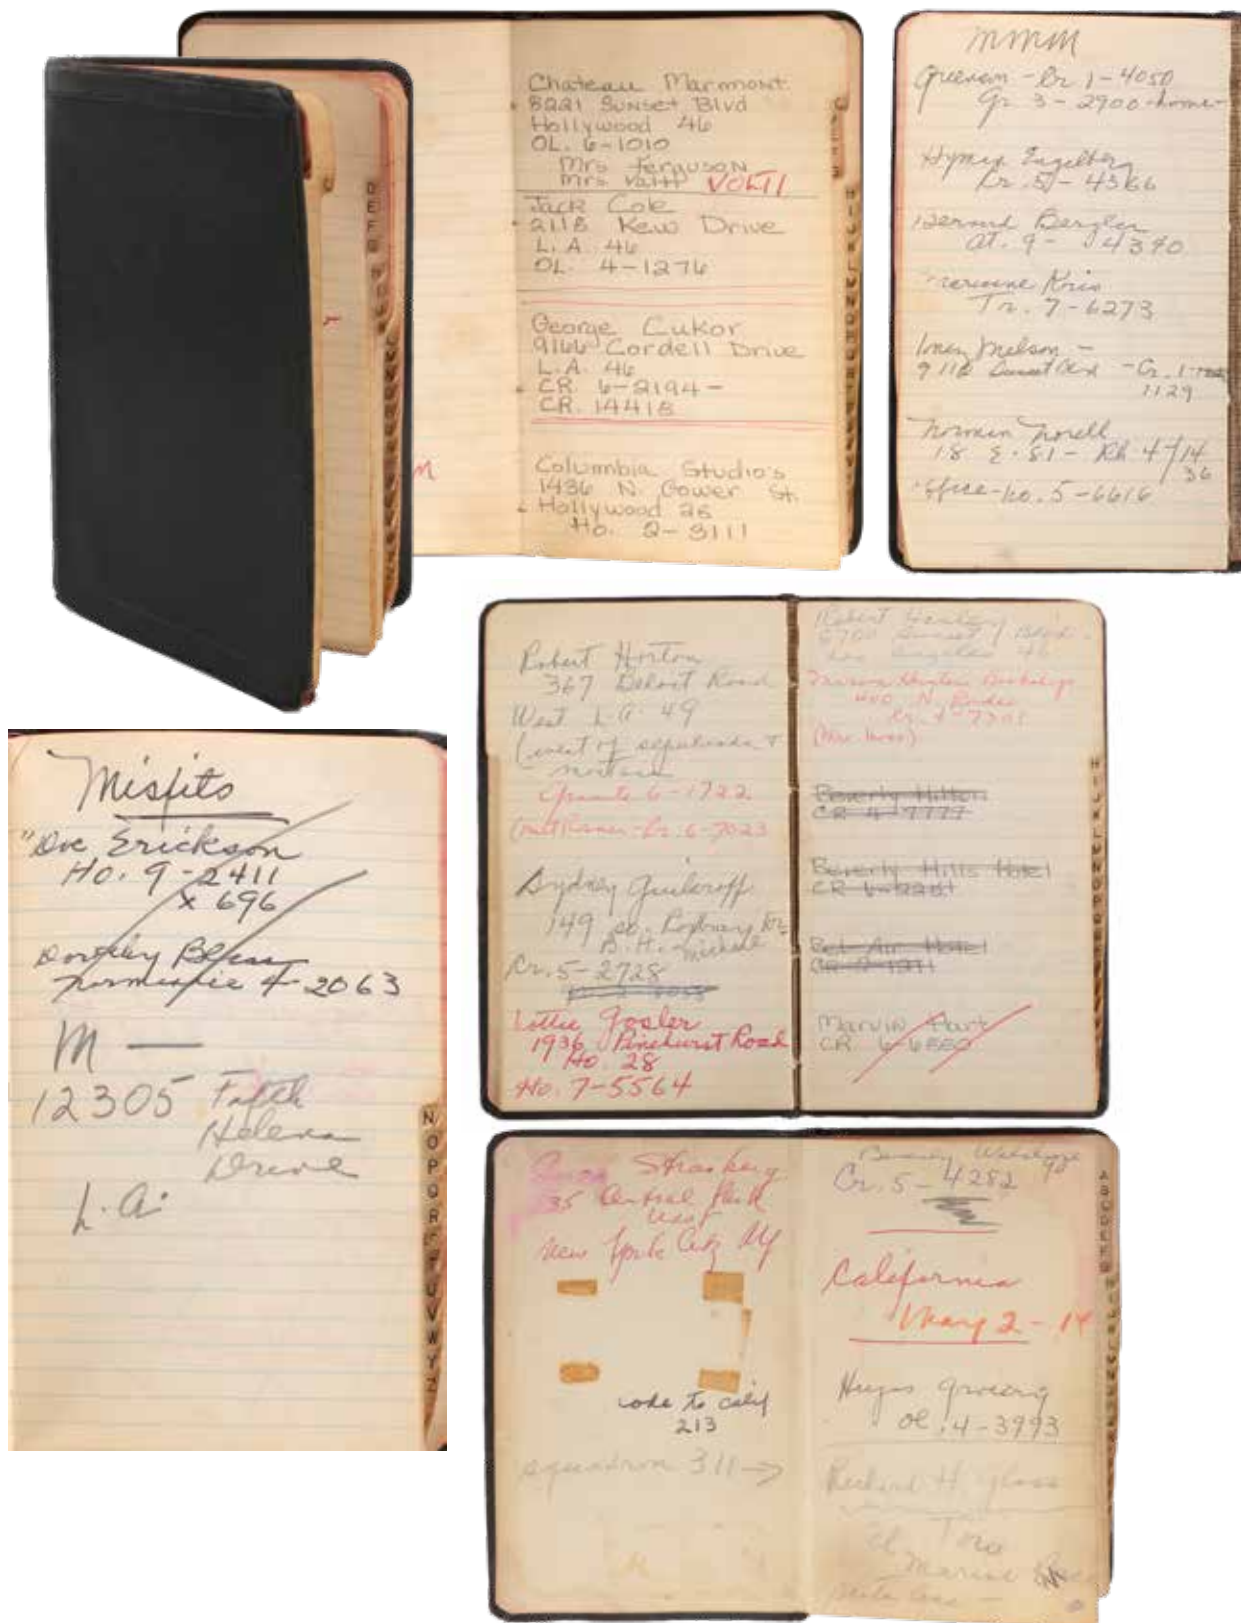 Chateau Marmont
8221 Sunset Blvd
Hollywood 46
OL. 6-1010
Mrs Ferguson
Mrs
Jack Cole
2118 Kew Drive
L.A. 46
OL. 4-1276
George Cukor
9166 Cordell Drive
L.A. 46
CR. 6-2194-
CR. 14418
Columbia Studio's
1436 N. Gower St.
Hollywood 28
Ho. 2-3111
MMM
Greenson - Cr 1-4050
Gr 3-2900-home
Hyman Engelberg
Cr. 5-4366
Bernard Bergler
At. 9- 4390
Marianne Kris
Tr. 7-6273
Inez Melson -
9110 Sunset Blvd - Cr. 1-
1129
Norman Norell
18 E. 81 - Rh 4/14
36
office-Lo. 5-6616
Misfits
"Doc Erickson
Ho. 9-2411
x 696
Dorothy
Normandie 4-2063
M —
12305 Fifth
Helena
Drive
L.A.
Robert Horton
367 Road
West L.A. 49
(west of sepulveda +
Granite 6-1722
Cr. 6-7023
Sydney Guilaroff
149 so. Roxbury Dr.
B.H. Michael
Cr. 5-2728
Lottie Gosler
1936 Pinehurst Road
Ho. 28
Ho. 7-5564
Robert
8700 Sunset Blvd.
Los Angeles 46
Marian Hunter Bookshop
400 N. Rodeo
Beverly Hilton
CR 4-7777
Beverly Hills Hotel
CR 6-2251
Bel-Air Hotel
CR 2-1211
Marvin Hart
CR. 6-6550
Susan Strasberg
135 Central Park
West
New York City NY
code to calif
213
squadron 311→
Beverly Wilshire
Cr. 5-4282
California
May 2-14
Huges grocery
Ol. 4-3993
Richard H. Glass
El Toro
Marine Base